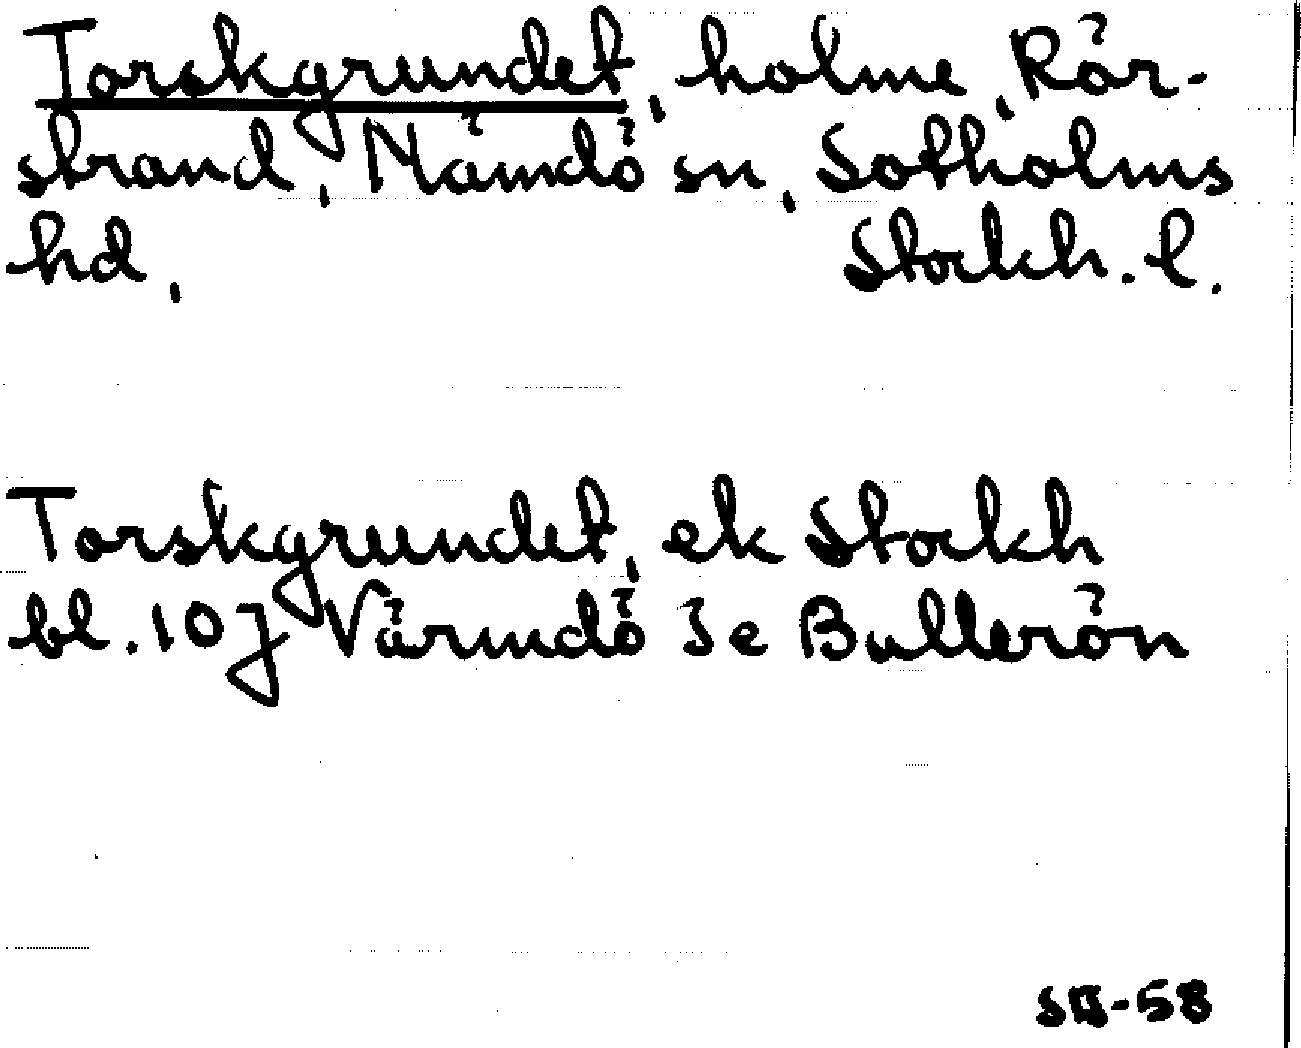 Torskgrundet, holme, Rör-
strand, Nämdö sn, Sotholms
hd, Stockh. l.
Torskgrundet, ek Stockh
bl. 10j Värmdö Se Bullerön
-58